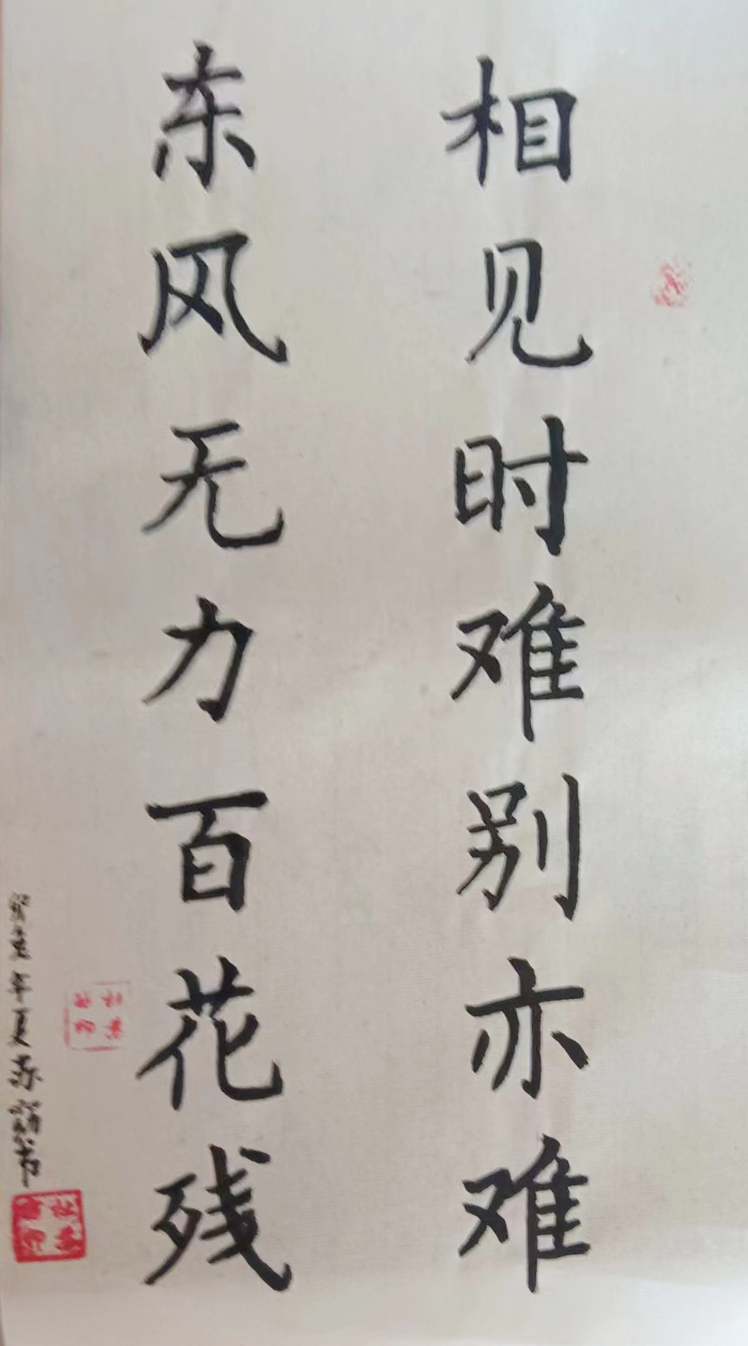 相见时难别亦难
东风无力百花残
年夏苏
书